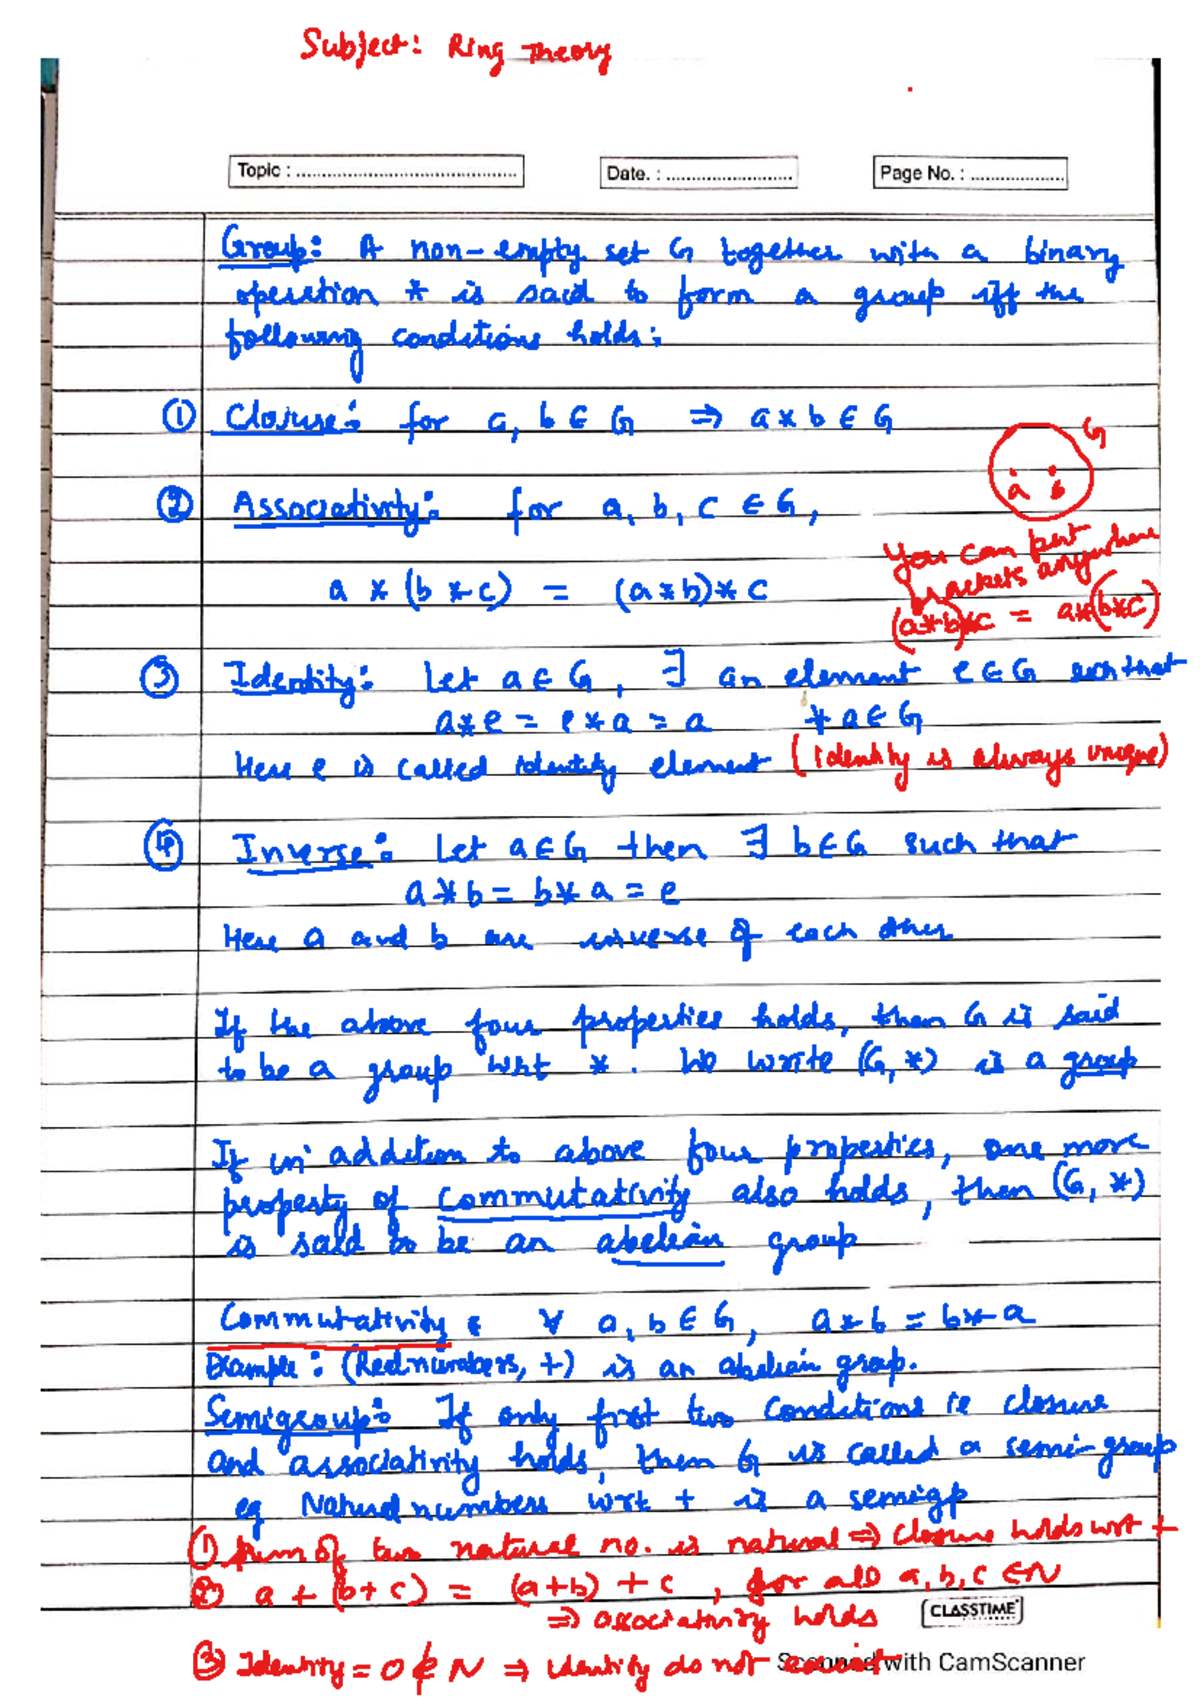 Subject: Ring Theory
Topic : ..........................................
Date. : ........................
Page No. : ..................
Group: A non-empty set G together with a binary
operation * is said to form a group iff the
following conditions holds:
① Closure: for a, b ∈ G ⇒ a * b ∈ G
G
a b
② Associativity: for a, b, c ∈ G,
You can put
brackets anywhere
a * (b * c) = (a * b) * c
(a*b)*c = a*(b*c)
③ Identity: Let a ∈ G, ∃ an element e ∈ G such that
a * e = e * a = a ∀ a ∈ G
Here e is called identity element (identity is always unique)
④ Inverse: Let a ∈ G then ∃ b ∈ G such that
a * b = b * a = e
Here a and b are inverse of each other
If the above four properties holds, then G is said
to be a group wrt *. We write (G, *) is a group
If in addition to above four properties, one more
property of commutativity also holds, then (G, *)
is said to be an abelian group
Commutativity: ∀ a, b ∈ G, a * b = b * a
Example: (Real numbers, +) is an abelian group.
Semigroup: If only first two conditions ie closure
and associativity holds, then G is called a semi-group
eg Natural numbers wrt + is a semigp
① sum of two natural no. is natural ⇒ closure holds wrt +
② a + (b + c) = (a+b) + c, for all a, b, c ∈ N
⇒ associativity holds
CLASSTIME
③ Identity = 0 ∉ N ⇒ identity do not exist
Scanned with CamScanner